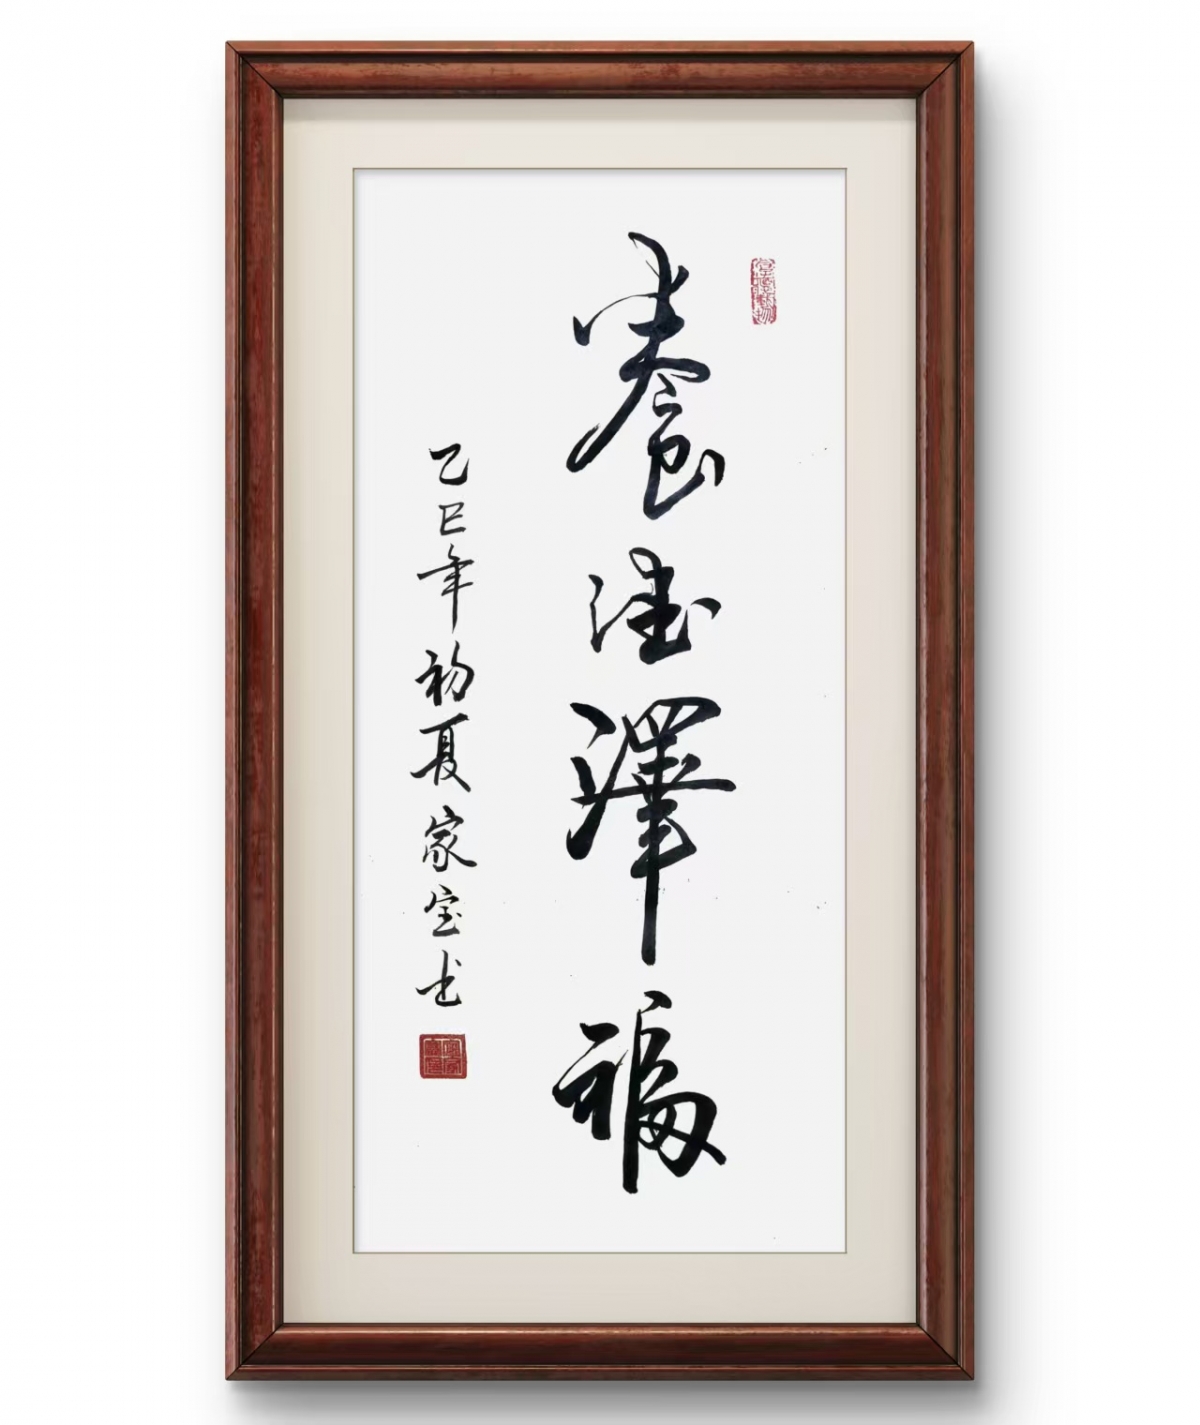 養德澤福
乙巳年初夏家宝书